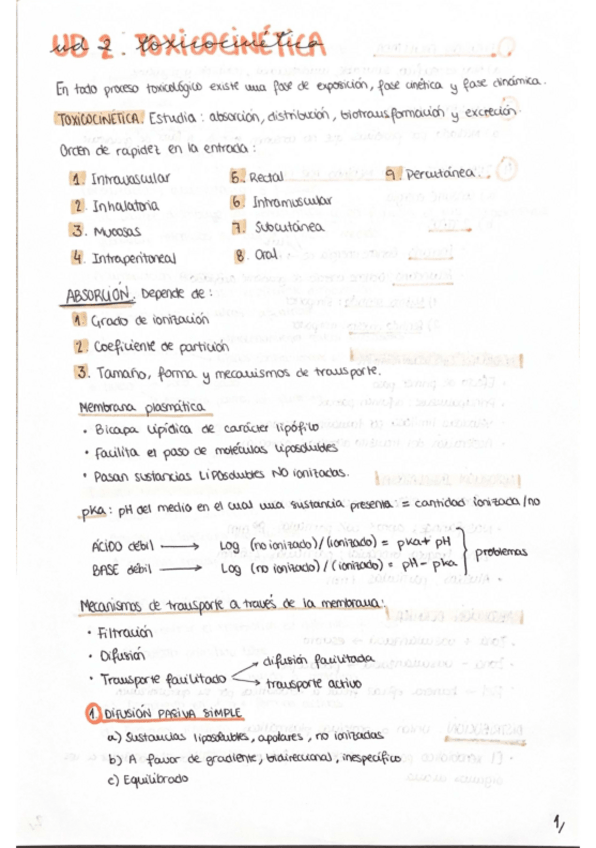 UD 2. TOXICOCINÉTICA
ud 2. toxicocinética
En todo proceso toxicológico existe una fase de exposición, fase cinética y fase dinámica.
TOXICOCINÉTICA. Estudia: absorción, distribución, biotransformación y excreción.
Orden de rapidez en la entrada:
1. Intravascular
2. Inhalatoria
3. Mucosas
4. Intraperitoneal
5. Rectal
6. Intramuscular
7. Subcutánea
8. Oral
9. Percutánea.
ABSORCIÓN. Depende de:
1. Grado de ionización
2. Coeficiente de partición
3. Tamaño, forma y mecanismos de transporte.
Membrana plasmática
• Bicapa lipídica de carácter lipófilo
• Facilita el paso de moléculas liposolubles
• Pasan sustancias LIPOsolubles NO ionizadas.
pka: pH del medio en el cual una sustancia presenta = cantidad ionizada/no
ÁCIDO débil → Log (no ionizado)/(ionizado) = pka + pH
BASE débil → Log (no ionizado)/(ionizado) = pH - pka
problemas
Mecanismos de transporte a través de la membrana:
• Filtración
• Difusión
• Transporte facilitado
difusión facilitada
transporte activo
1. DIFUSIÓN PASIVA SIMPLE
a) Sustancias liposolubles, apolares, no ionizadas
b) A favor de gradiente, bidireccional, inespecífico
c) Equilibrado
1/